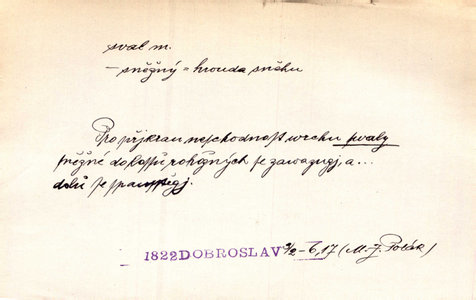 sval m.
– sněžný = hrouda sněhu
Pro přjkrau neschodnost wrchu swaly
sněžné do kossů rohožných se zawazugj, a...
dolů se spausstěgj.
1822 DOBROSLAV 3/2 – 6, 17 (M. J. Polák)